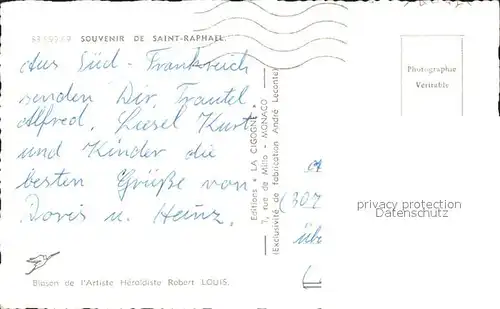 SOUVENIR DE SAINT-RAPHAEL.
Aus Süd-Frankreich
senden Dir, Trautel,
Alfred, Liesel Kurt
und Kinder die
besten Grüße von
Doris u. Heinz.
Blason de l'Artiste Héraldiste Robert LOUIS.
Editions "LA CIGOGNE"
7, rue de Millo - MONACO
(Exclusivité de fabrication André Leconte)
Photographie
Véritable
(307
übe
privacy protection
Datenschutz